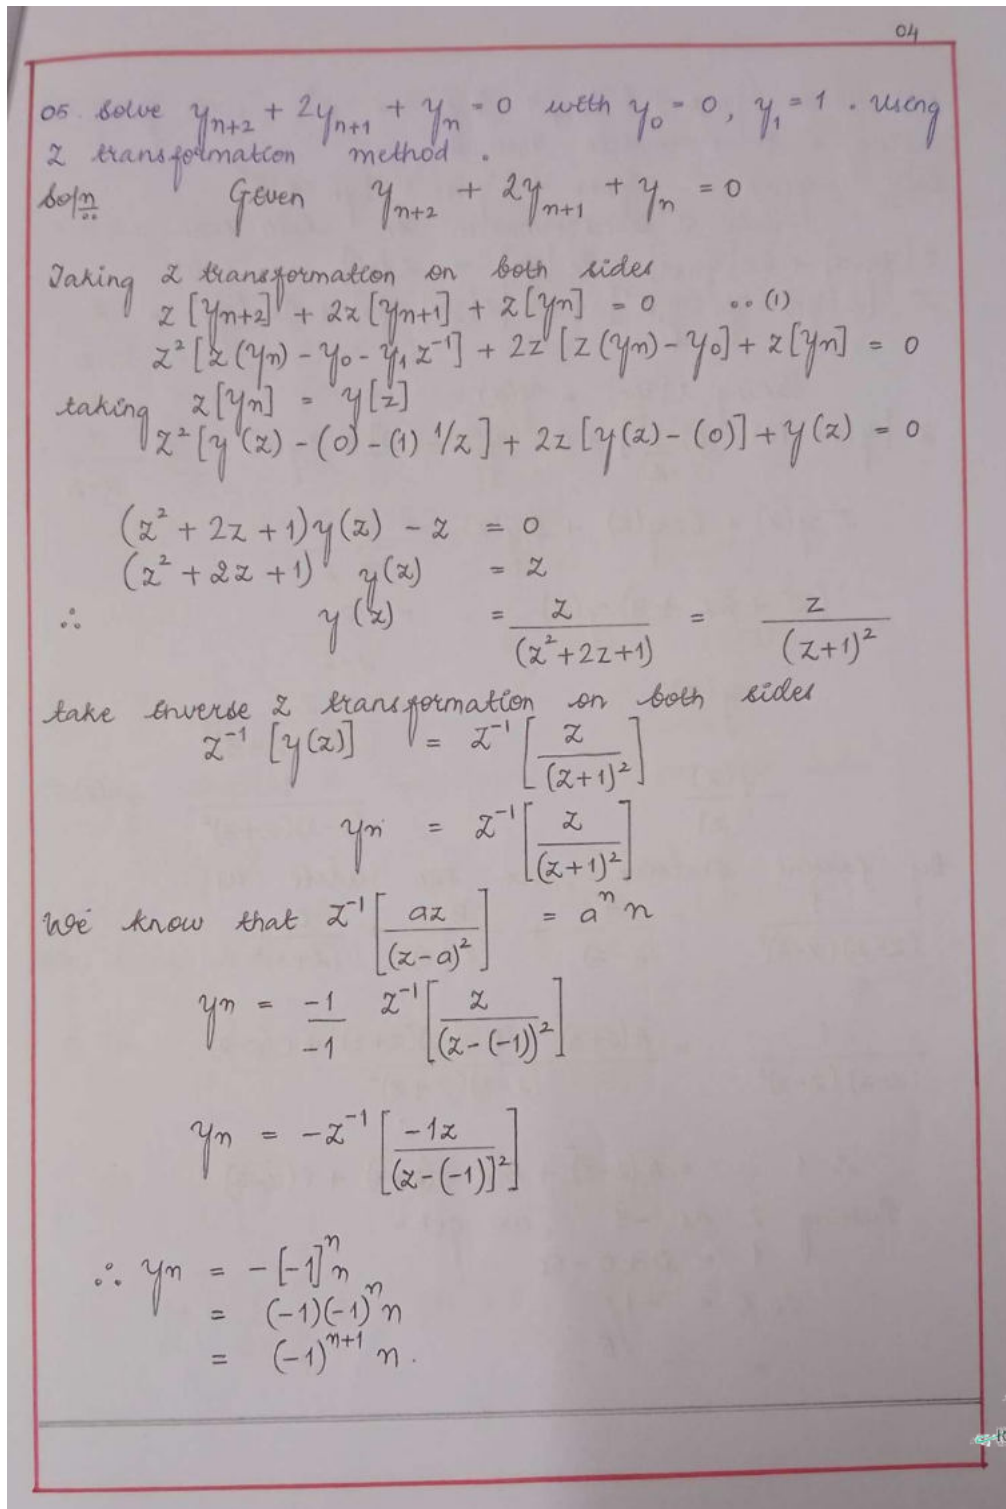 04
05. Solve y_{n+2} + 2y_{n+1} + y_n = 0 with y_0 = 0, y_1 = 1. Using
Z transformation method.
Sol/n:. Given y_{n+2} + 2y_{n+1} + y_n = 0
Taking Z transformation on both sides
z[y_{n+2}] + 2z[y_{n+1}] + z[y_n] = 0 ..(1)
z²[z(y_n) - y_0 - y_1 z⁻¹] + 2z[z(y_n) - y_0] + z[y_n] = 0
taking z[y_n] = y[z]
z²[y(z) - (0) - (1) 1/z] + 2z[y(z) - (0)] + y(z) = 0
(z² + 2z + 1)y(z) - z = 0
(z² + 2z + 1) y(z) = z
∴ y(z) = z/(z²+2z+1) = z/(z+1)²
take inverse Z transformation on both sides
z⁻¹ [y(z)] = z⁻¹ [z/(z+1)²]
y_n = z⁻¹ [z/(z+1)²]
We know that z⁻¹ [az/(z-a)²] = aⁿ n
y_n = -1/-1 z⁻¹ [z/(z-(-1))²]
y_n = -z⁻¹ [-1z/(z-(-1)]²]
∴ y_n = -[-1]ⁿ n
= (-1)(-1)ⁿ n
= (-1)ⁿ⁺¹ n.